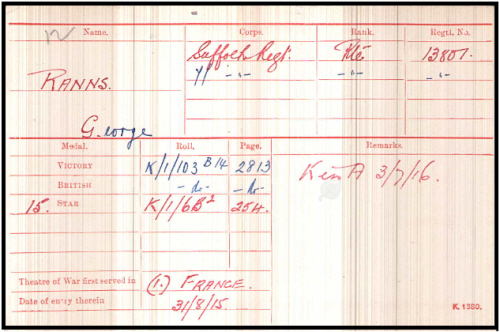 Name. Corps. Rank. Regtl. No.
RANNS. Suffolk Regt. Pte 13807.
George
Medal. Roll. Page. Remarks.
VICTORY K/1/103 B14 2813
BRITISH -do- -do-
15. STAR K/1/6B² 254. K in A 3/7/16.
Theatre of War first served in (1.) FRANCE.
Date of entry therein 31/8/15.
K. 1380.